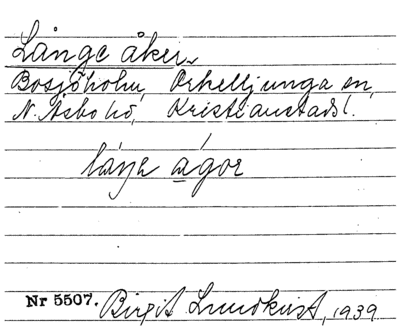 Långe åker
Bosjöholm, Örkelljunga sn,
N. Åsbo hd, Kristianstads l.
Nr 5507. Birgit Lundkvist, 1939